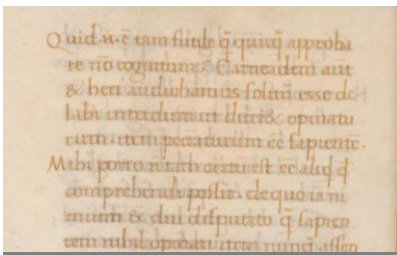 Quid u. ē tam futile q̄ quicq̄ approba
re nō cognitum. Carneadem aūt
& heri audiebamus solitū esse de
labi interdum ut dicer& opinatu
rum. item peccaturum eē sapientē.
Mihi porro n tam certū est eē aliqd qd
comprehendi possit. de quo iam
nimium & diu disputato q̄ sapien
tem nihil opinari nunq̄ assen